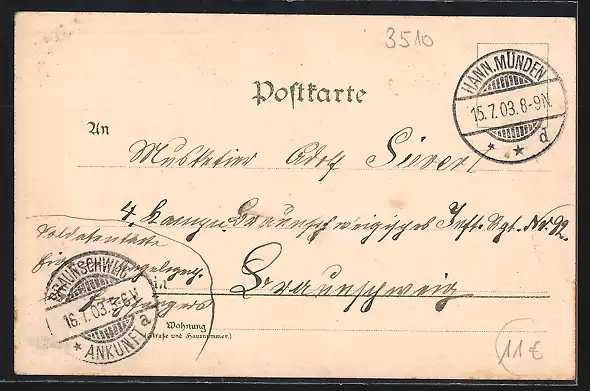 3510
HANN. MÜNDEN
15.7.03.8-9N.
d
Postkarte
An
Musketier Adolf Sievers
4. Komp. Braunschweigisches Inft. Rgt. No. 92.
Soldatenkarte
in
Braunschweig
BRAUNSCHWEIG
16.7.03.
ANKUNFT a
Wohnung
(Straße und Hausnummer.)
11€